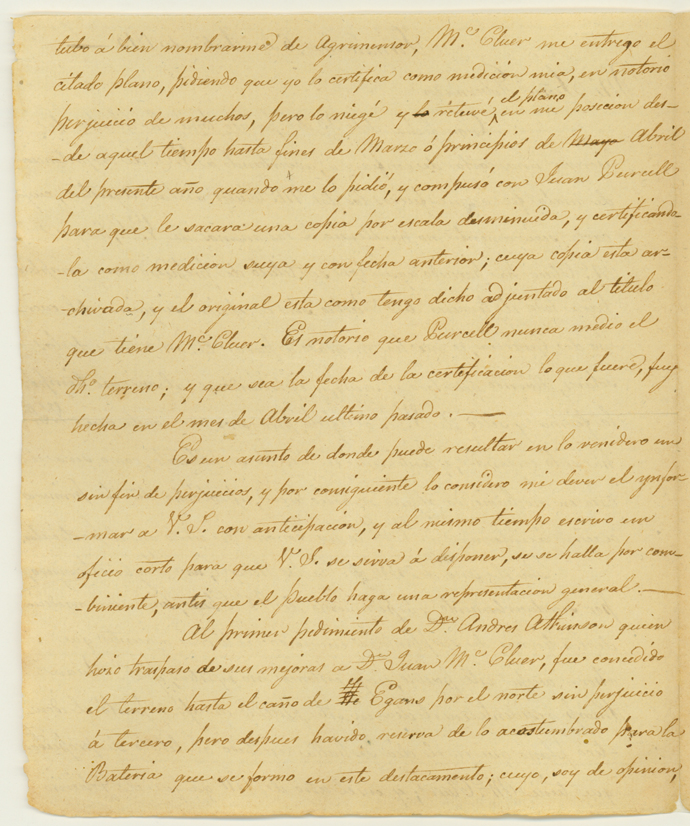 tubo á bien nombrarme de Agrimensor, Mc. Cluer me entrego el
citado plano, pidiendo que yo lo certifica como medicion mia, en notorio
perjuicio de muchos, pero lo niegé y lo retuvé, el plano en me posicion des-
-de aquel tiempo hasta fines de Marzo ó principios de Mayo Abril
del presente año quando me lo pidió, y compusó con Juan Purcell
para que le sacara una copia por escala desminuida, y certificando-
-la como medicion suya y con fecha anterior; cuya copia esta ar-
-chivada, y el original esta como tengo dicho adjuntado al titulo
que tiene Mc. Cluer. Es notorio que Purcell nunca medio el
dho. terreno; y que sea la fecha de la certificacion lo que fuere, fuy
hecha en el mes de Abril ultimo pasado.
Es un asunto de donde puede resultar en lo venidero un
sin fin de perjuicios, y por consiguiente lo considero mi dever el ynfor-
-mar a V. S. con anticipacion, y al mismo tiempo escrivo un
oficio corto para que V. S. se sirva á disponer, se se halla por com-
-biniente, antes que el Pueblo haga una representacion general.
Al primer pedimiento de Dn. Andres Atkinson quien
hizo traspaso de sus mejoras a Dn. Juan Mc. Cluer, fue concedido
el terreno hasta el caño de Egans por el norte sin perjuicio
á tercero, pero despues havido reserva de lo acostumbrado para la
Bateria que se formo en este destacamento; cuyo, soy de opinion,